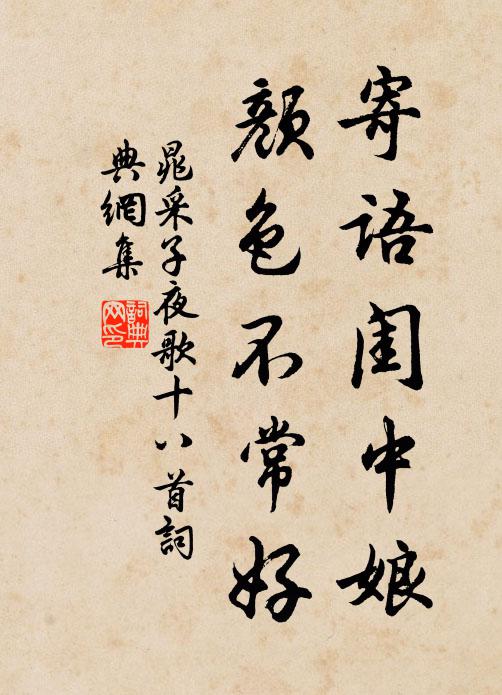 寄語閨中娘
顏色不常好
晁采子夜歌十八首詞
典網集
詞典
网印